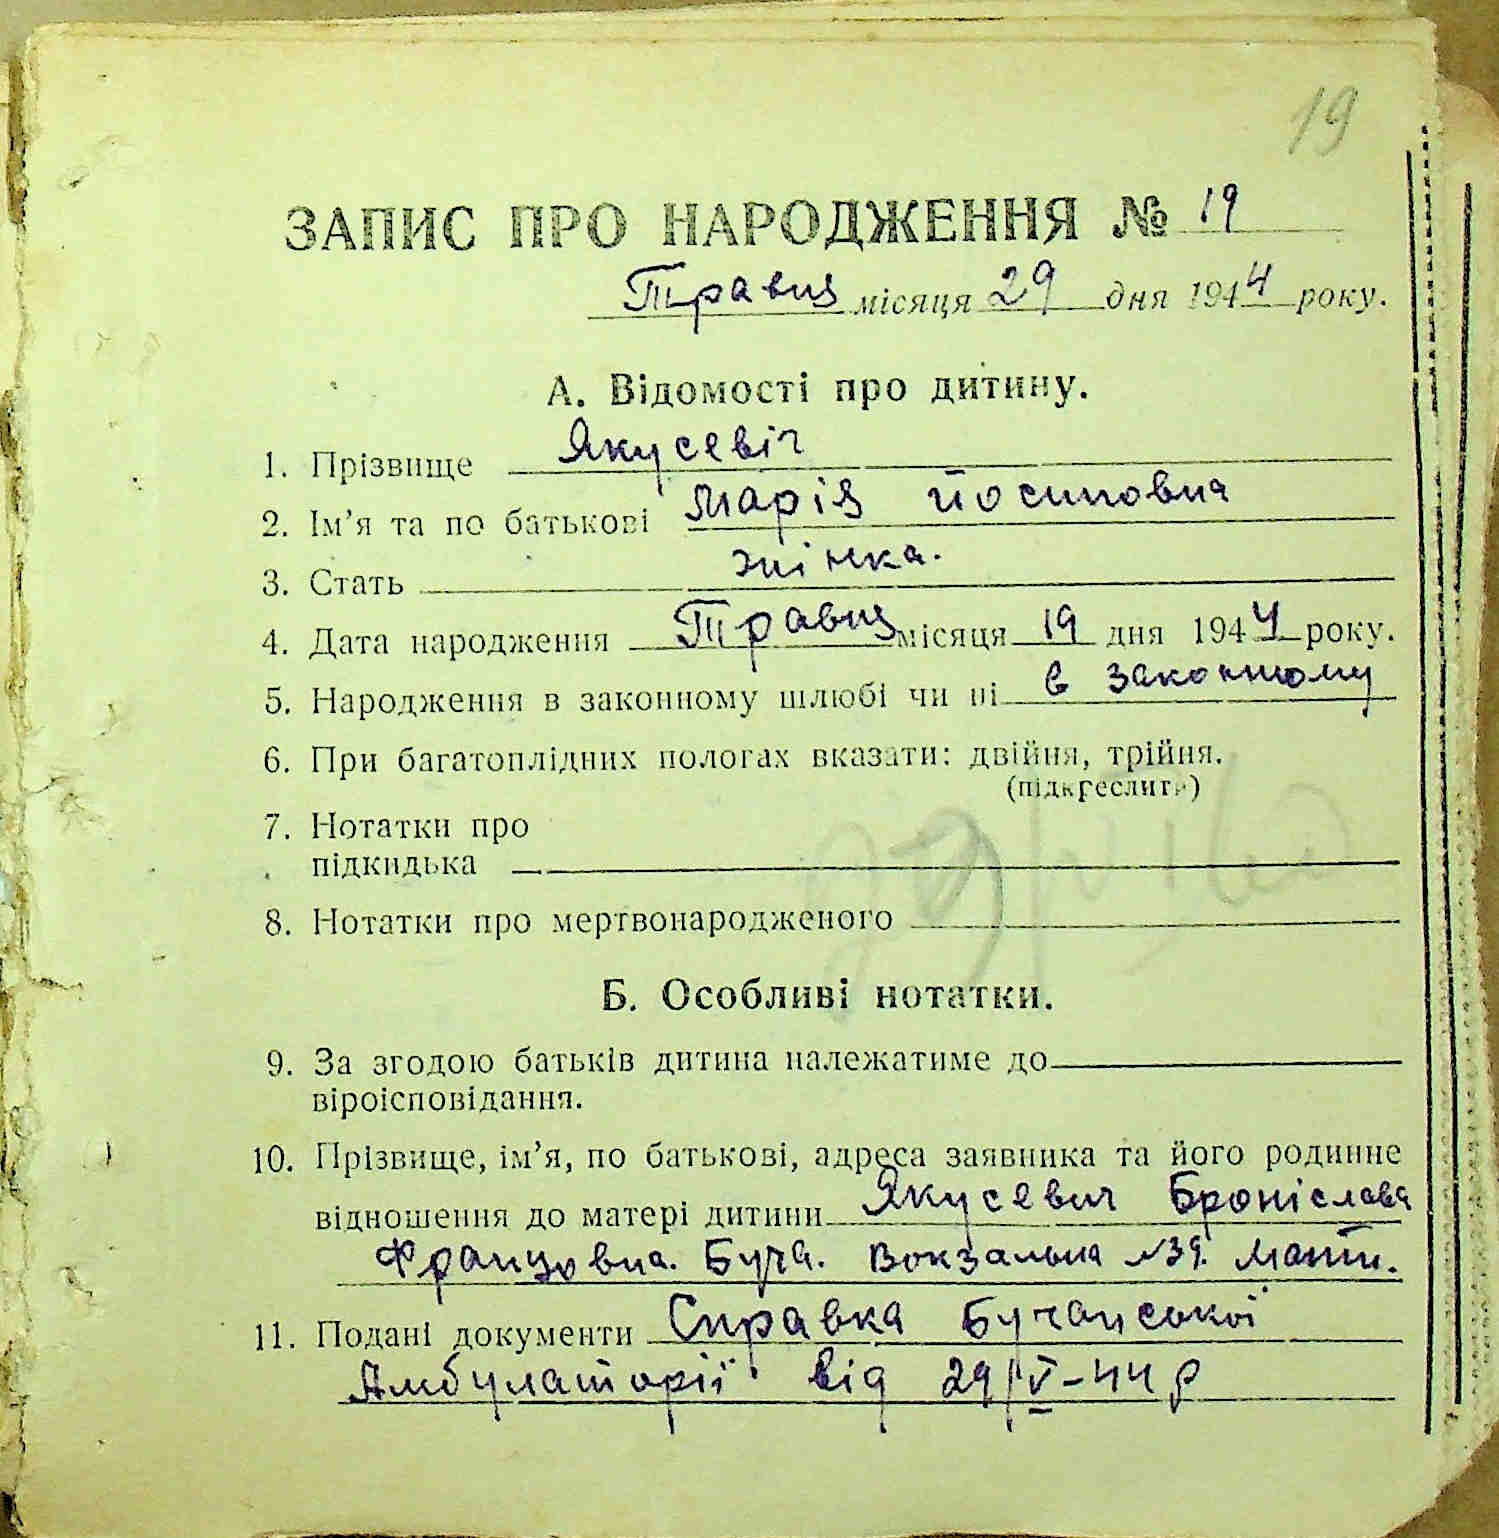 19
ЗАПИС ПРО НАРОДЖЕННЯ № 19
Травня місяця 29 дня 1944 року.
А. Відомості про дитину.
1. Прізвище Якусевіч
2. Ім’я та по батькові Марія Йосиповна
3. Стать жінка.
4. Дата народження Травня місяця 19 дня 1944 року.
5. Народження в законному шлюбі чи ні в законному
6. При багатоплідних пологах вказати: двійня, трійня.
(підкреслити)
7. Нотатки про
підкидька
8. Нотатки про мертвонародженого
Б. Особливі нотатки.
9. За згодою батьків дитина належатиме до
віроісповідання.
10. Прізвище, ім’я, по батькові, адреса заявника та його родинне
відношення до матері дитини Якусевич Броніслава
Францовна. Буча. Вокзальна №39. Мати.
11. Подані документи Справка Бучанської
Амбулаторії від 29/V-44 р